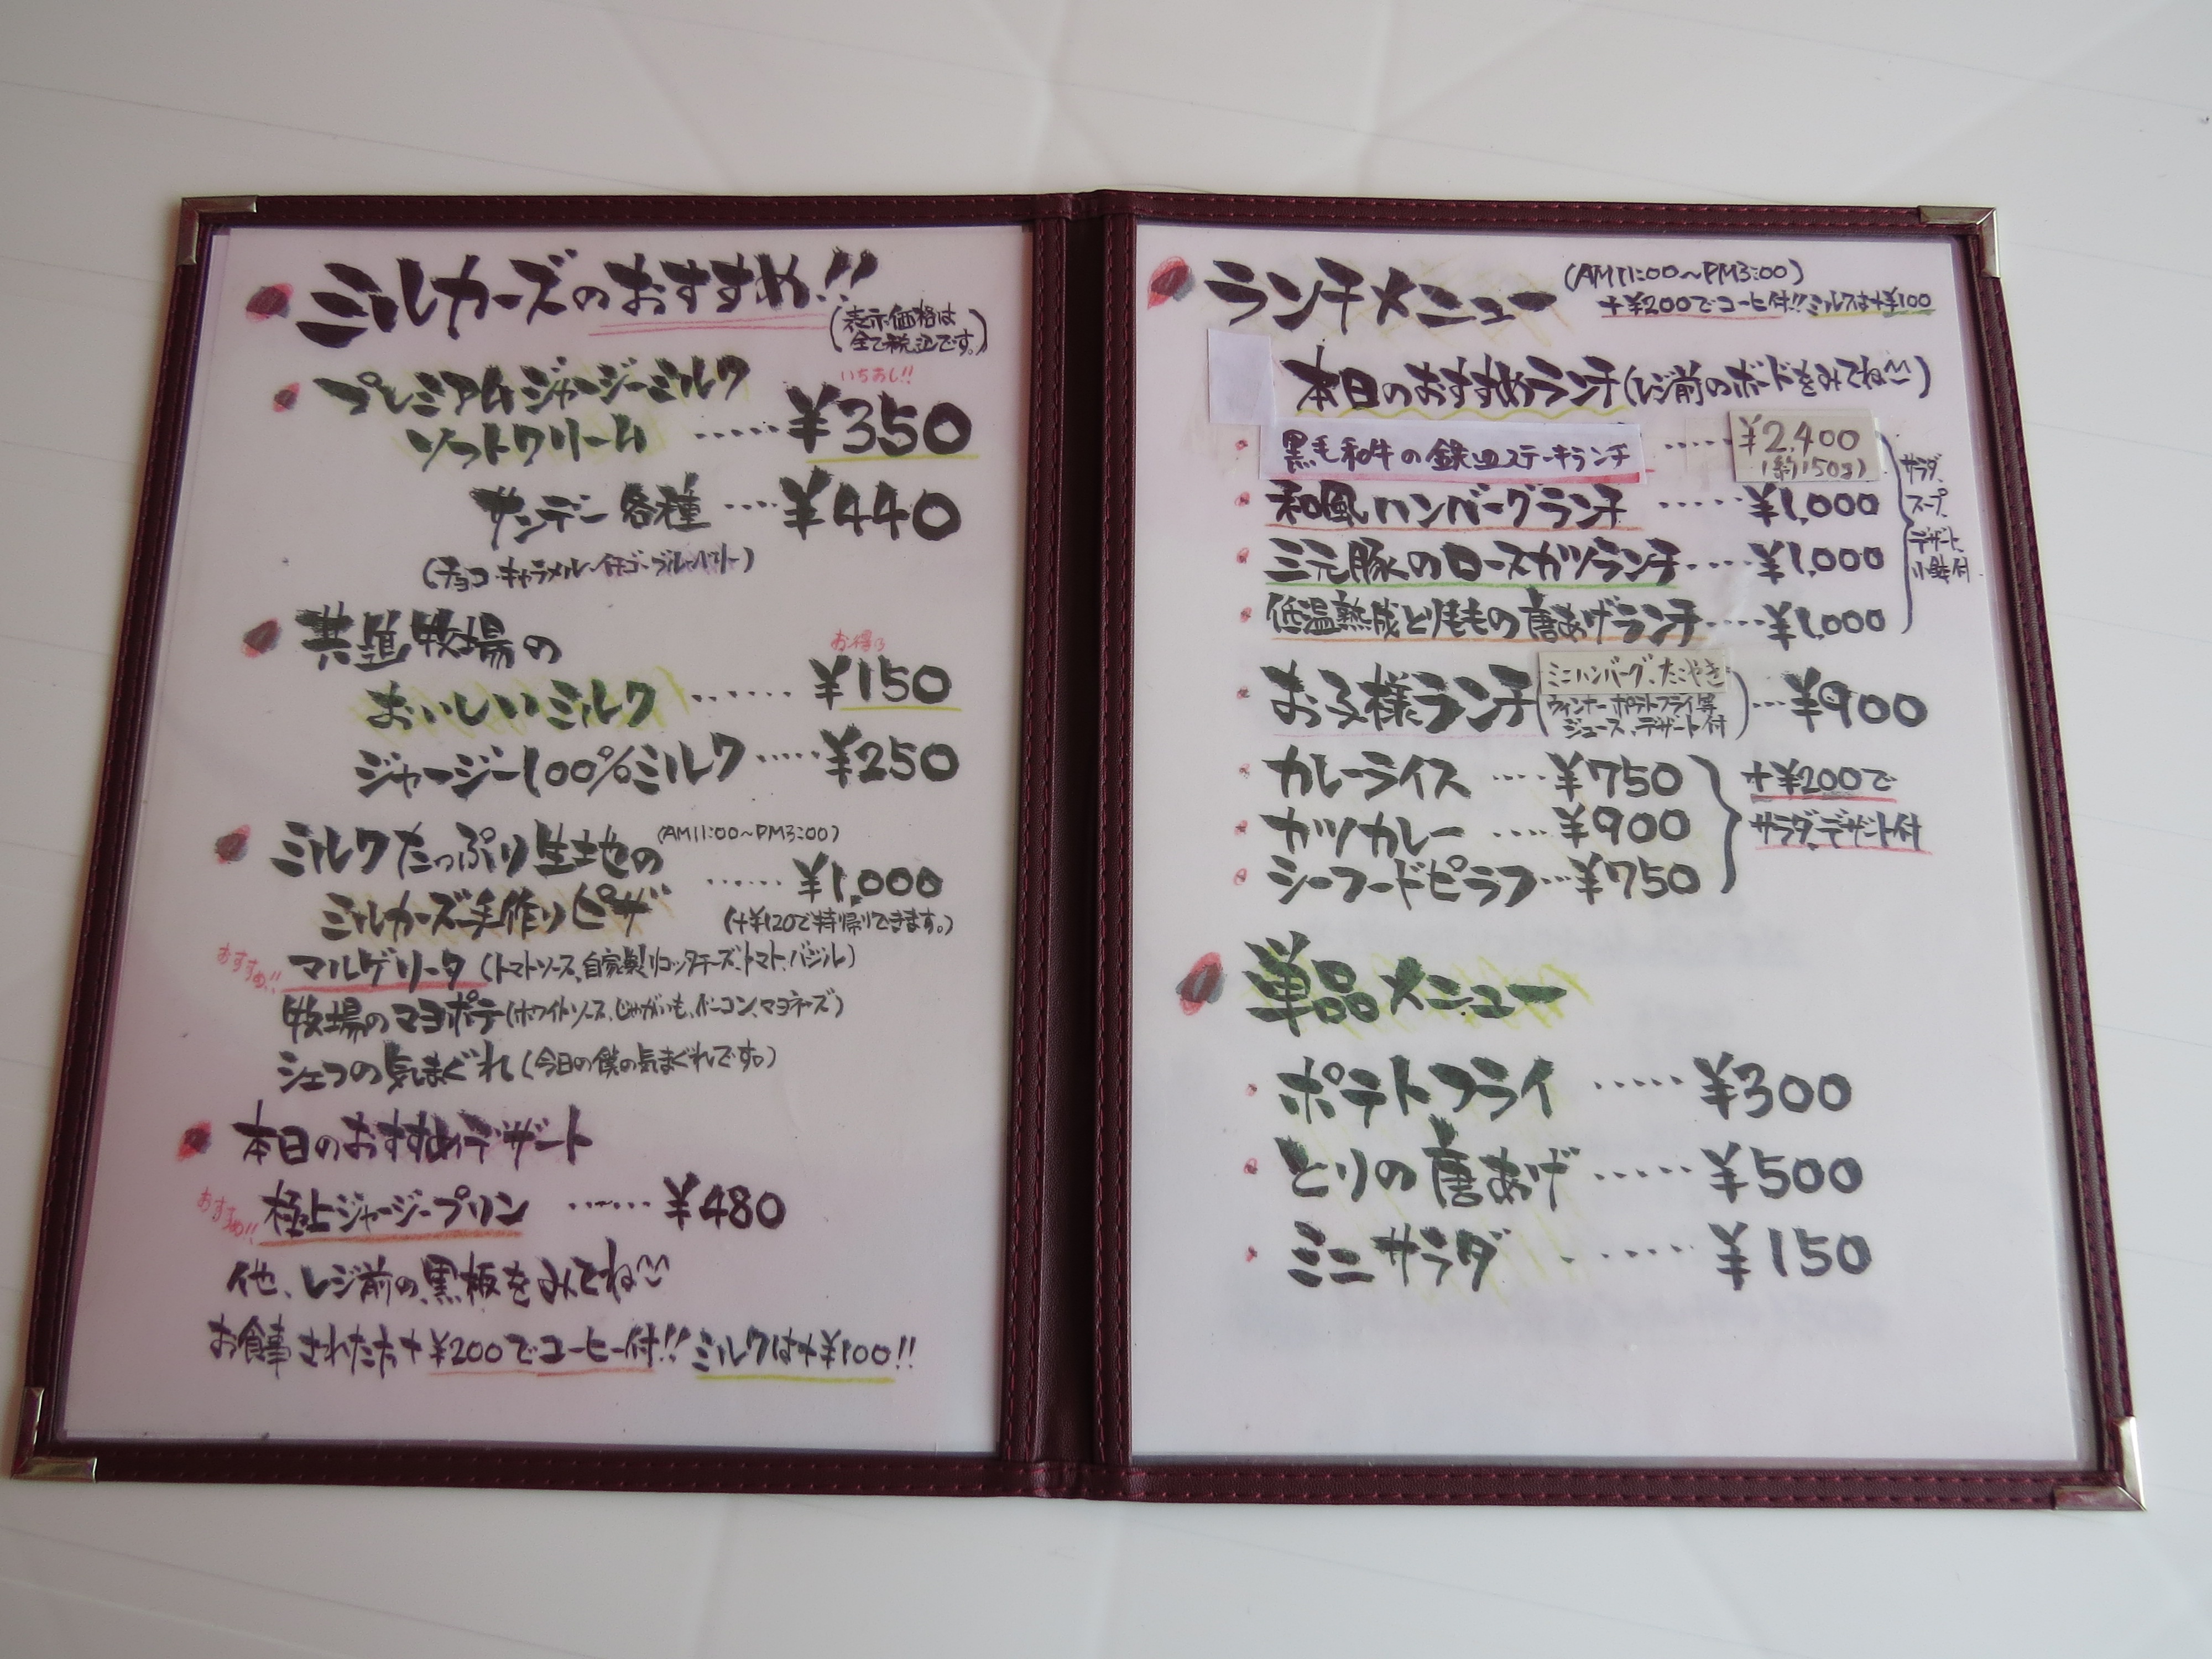 ミルカーズのおすすめ!!
(表示価格は
全て税込です。)
プレミアムジャージーミルク
いちおし!!
ソフトクリーム ····· ¥350
サンデー各種 ···· ¥440
(チョコ・キャラメル・イチゴ・ブルーベリー)
共進牧場の
お得
おいしいミルク ······ ¥150
ジャージー100%ミルク ···· ¥250
ミルクたっぷり生地の (AM11:00～PM3:00)
ミルカーズ手作りピザ ······ ¥1,000
(+¥120で持帰りできます。)
おすすめ!! マルゲリータ (トマトソース、自家製リコッタチーズ、トマト、バジル)
牧場のマヨポテ (ホワイトソース、じゃがいも、ベーコン、マヨネーズ)
シェフの気まぐれ (今日の僕の気まぐれです。)
本日のおすすめデザート
おすすめ!! 極上ジャージープリン ······ ¥480
他、レジ前の黒板をみてね
お食事された方+¥200でコーヒー付!! ミルクは+¥100!!
ランチメニュー (AM11:00～PM3:00)
+¥200でコーヒ付!! ミルクは+¥100
本日のおすすめランチ (レジ前のボードをみてね)
黒毛和牛の鉄皿ステーキランチ ····· ¥2,400
(約150g)
和風ハンバーグランチ ····· ¥1,000
三元豚のロースカツランチ ···· ¥1,000
低温熟成とりももの唐あげランチ ···· ¥1,000
サラダ、
スープ、
デザート、
小鉢付
お子様ランチ (ミニハンバーグ、たこやき
ウィンナー ポテトフライ等
ジュース、デザート付) ··· ¥900
カレーライス ···· ¥750
カツカレー ···· ¥900
シーフードピラフ ··· ¥750
+¥200で
サラダ、デザート付
単品メニュー
ポテトフライ ····· ¥300
とりの唐あげ ····· ¥500
ミニサラダ ······ ¥150